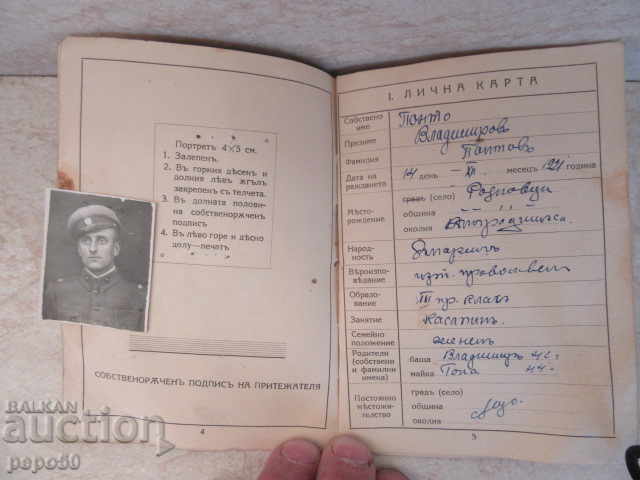 Портретъ 4×5 см.
1. Залепенъ.
2. Въ горния десенъ и
долния лѣвъ жгълъ
закрепенъ съ телчета.
3. Въ долната половина
собственоржченъ
подпись
4. Въ лѣво горе и дѣсно
долу—печатъ
СОБСТВЕНОРѪЧЕНЪ ПОДПИСЪ НА ПРИТЕЖАТЕЛЯ
4
I. ЛИЧНА КАРТА
Собствено име
Презиме Владимировъ
Фамилия
Дата на раждането 14 день — месецъ 921 година
Мѣсто-рождение
градъ (село)
община " "
околия
Народ-ность българинъ
Вѣроизпо-вѣдание изт. православенъ
Образо-вание III пр. класъ
Занятие
Семейно положение жененъ
Родители (собствени и фамилни имена)
баща Владимиръ
майка
Постоянно мѣстожи-телство
градъ (село)
община
околия
5
BALKAN
auction
pepo50